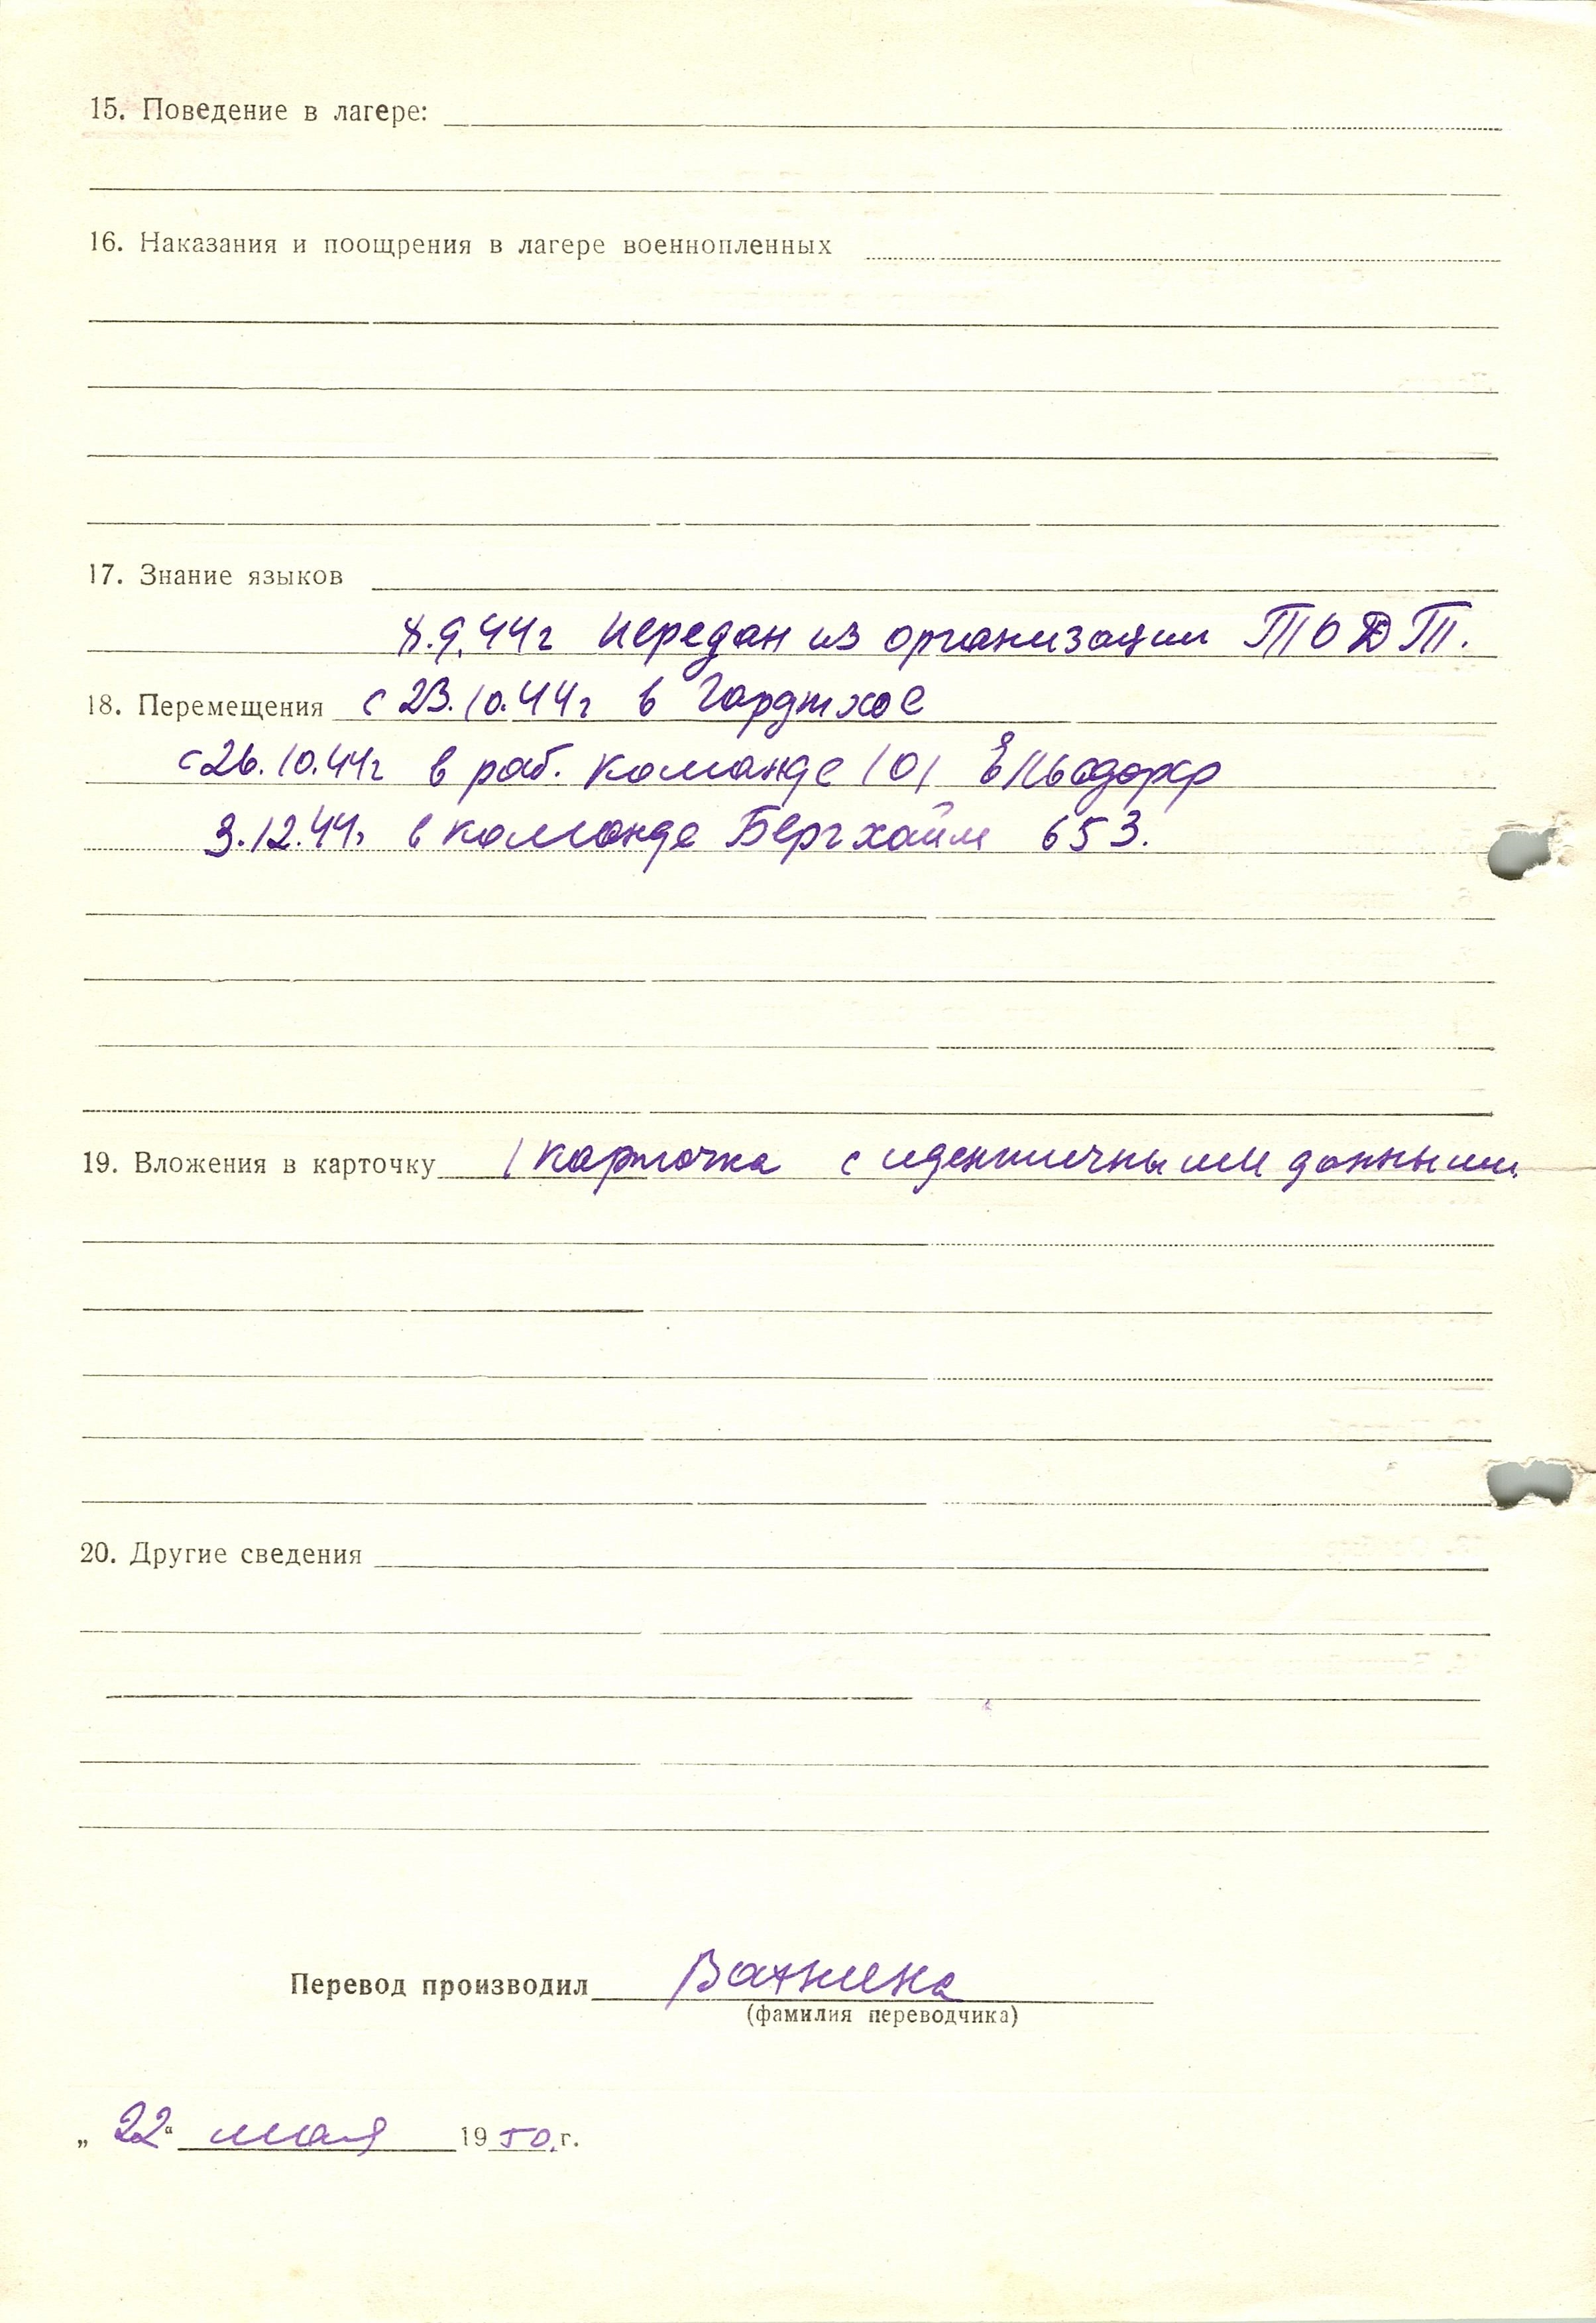 15. Поведение в лагере:
16. Наказания и поощрения в лагере военнопленных
17. Знание языков
8.9.44г передан из организации ТОДТ.
18. Перемещения с 23.10.44г в Гардтхое
с 26.10.44г в раб. команде 101 Ельсдорф
3.12.44г в команде Бергхайм 653.
19. Вложения в карточку 1 карточка с идентичными данными.
20. Другие сведения
Перевод производил
(фамилия переводчика)
„22“ мая 1950. г.